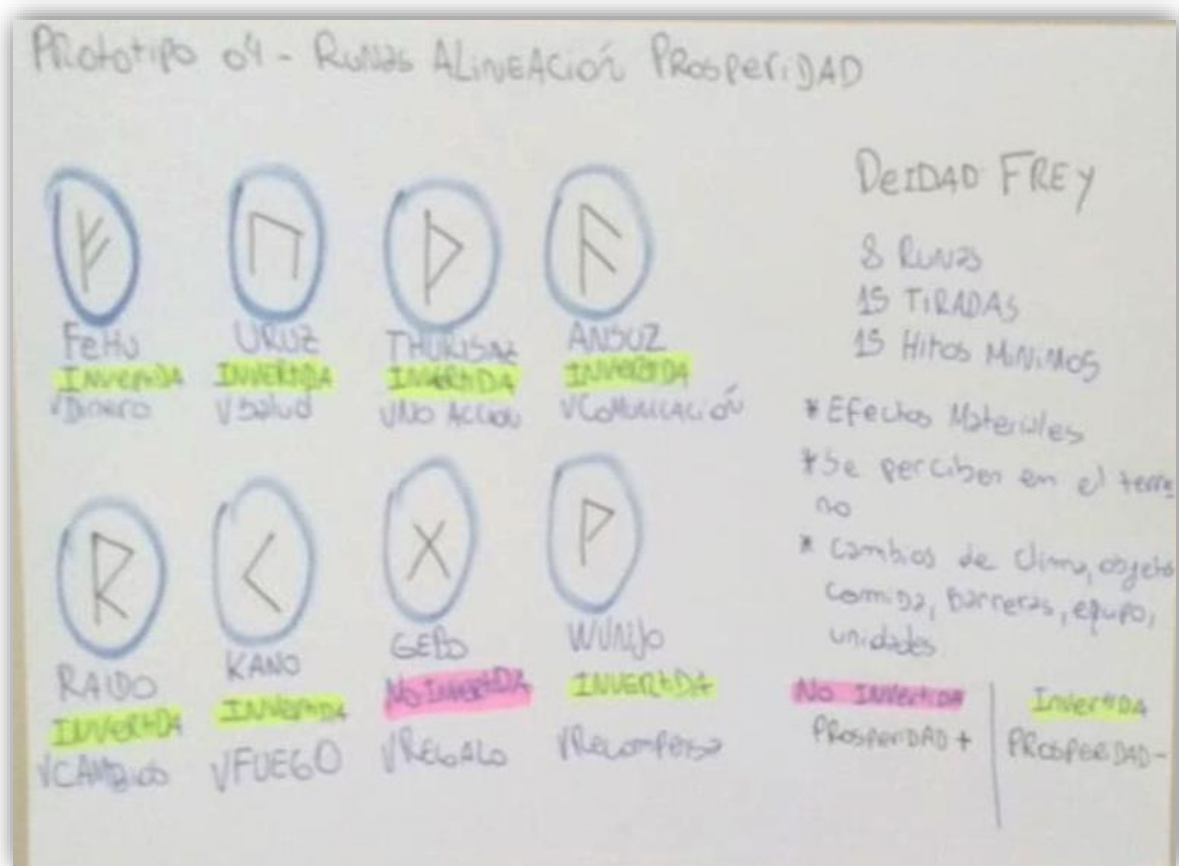 PROtOtiPO 04 - RUNAS ALINEACIÓN PROSPERIDAD
FEHU
INVERtIDA
√Dinero
URUZ
INVERtIDA
√Salud
THURISAZ
INVERtIDA
√NO ACCION
ANSUZ
INVERtIDA
√COMUNICACIÓN
RAIDO
INVERtIDA
√CAMBIOS
KANO
INVERtIDA
√FUEGO
GEBO
NO INVERtIDA
√REGALO
WUNJO
INVERtIDA
√Recompensa
DEIDAD FREY
8 RUNAS
15 TIRADAS
15 Hitos MíNIMOS
* Efectos Materiales
* Se perciben en el terre
no
* Cambios de clima, objeto
comida, barreras, equipo,
unidades
No INVERtIDA
PROSPERIDAD +
InvertIDA
PROSPERIDAD -